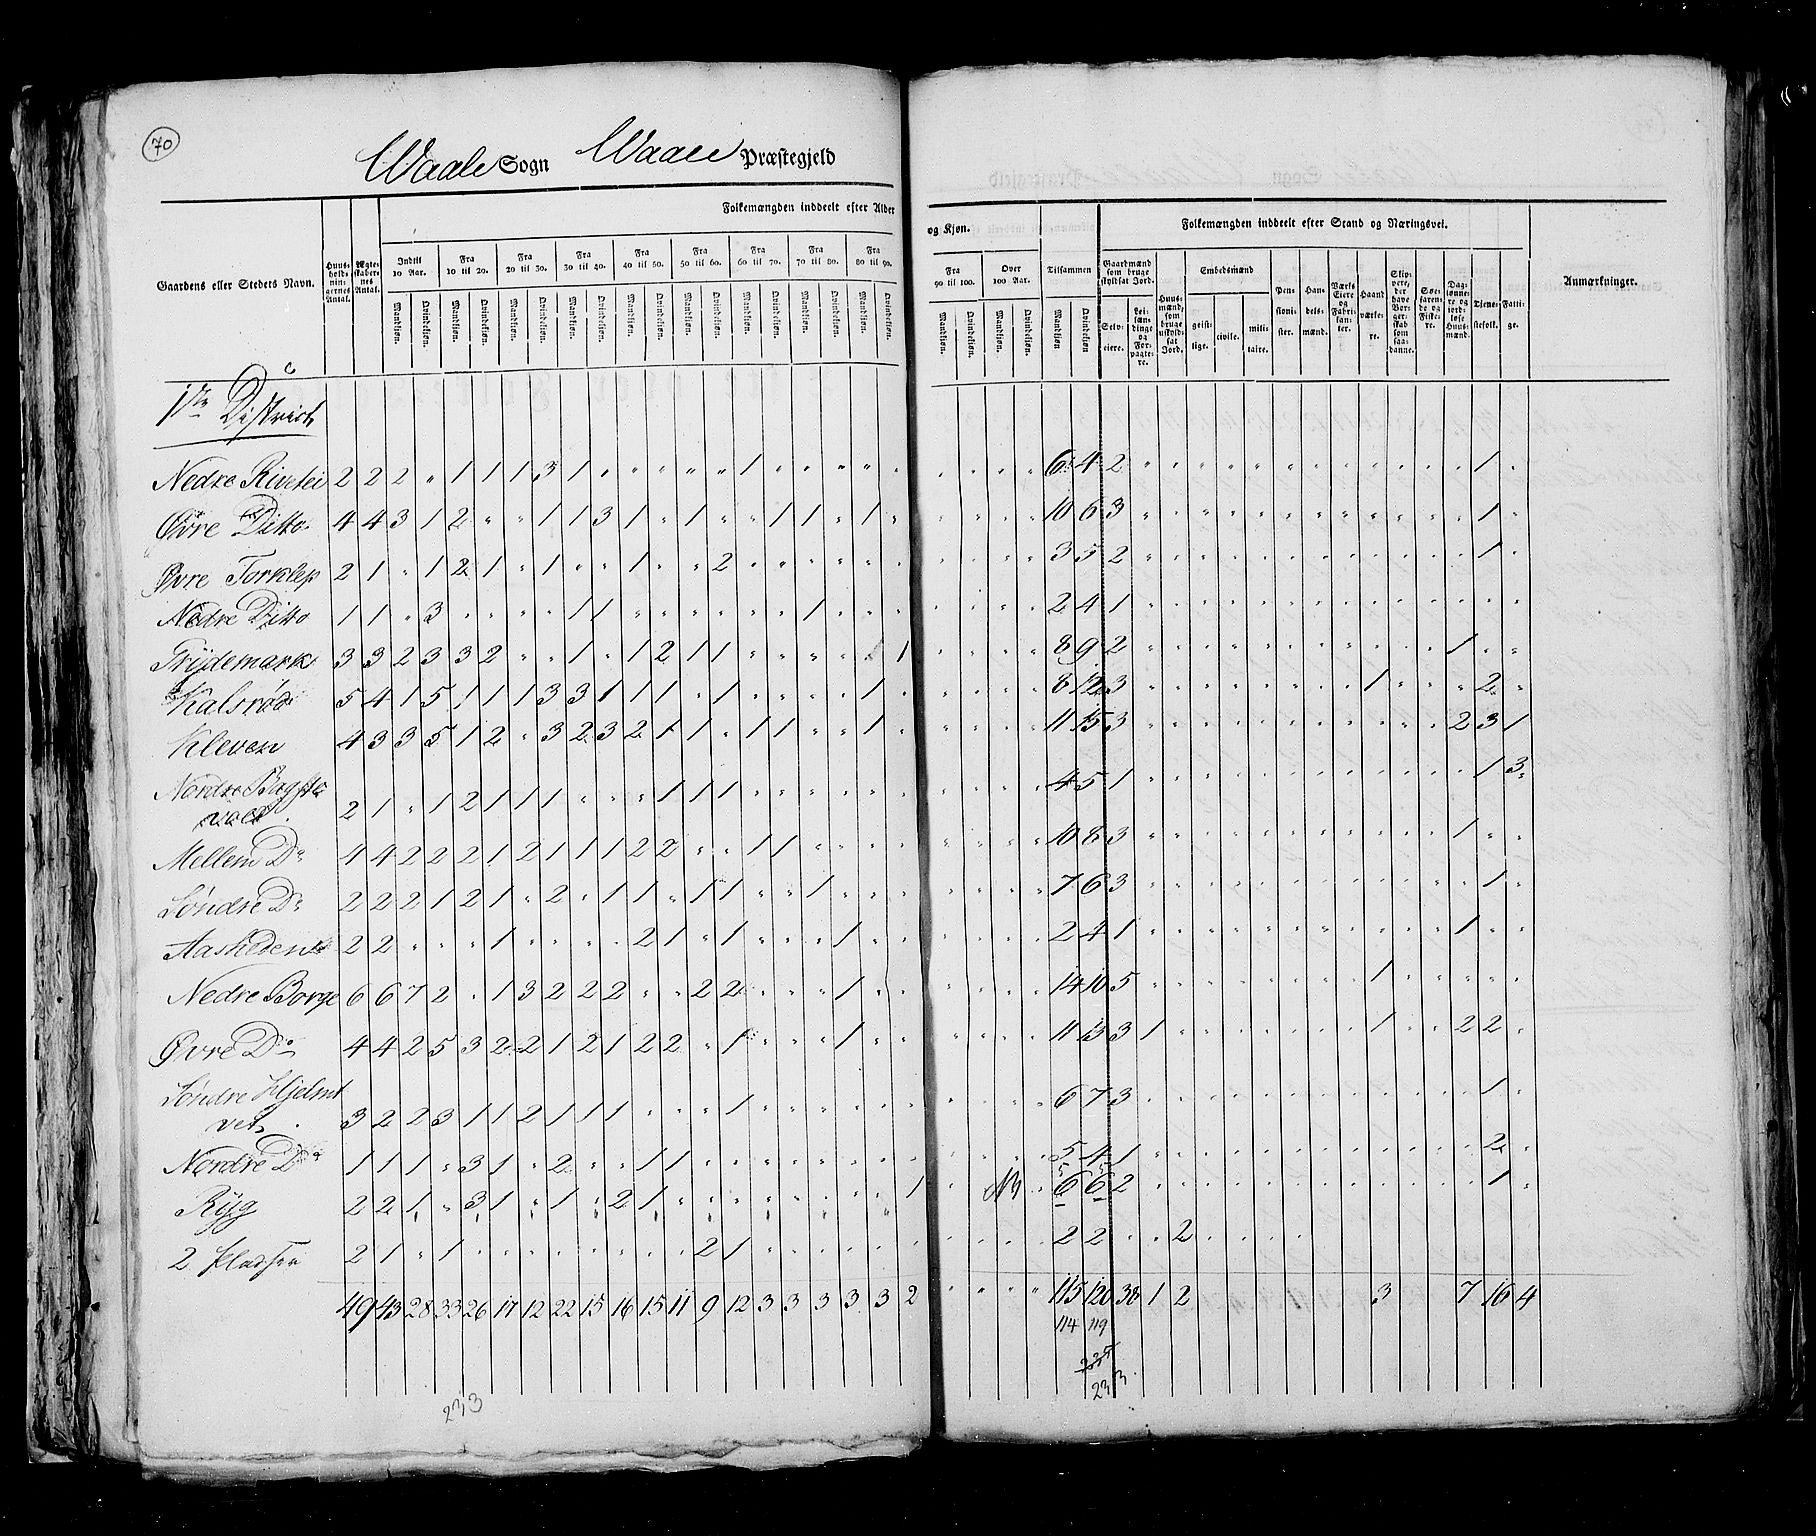 70
Waale Sogn Waale Præstegjeld
Folkemængden inddeelt efter Alder og Kjøn.
Folkemængden inddeelt efter Stand og Næringsvei.
Gaardens eller Stedets Navn.
Huus-holdningernes Antal.
Ægteskabernes Antal.
Indtil 10 Aar.
Fra 10 til 20.
Fra 20 til 30.
Fra 30 til 40.
Fra 40 til 50.
Fra 50 til 60.
Fra 60 til 70.
Fra 70 til 80.
Fra 80 til 90.
Fra 90 til 100.
Over 100 Aar.
Tilsammen
Gaardmænd som bruge skyldsat Jord.
Embedsmænd
Anmærkninger.
Mandkiøn. Qvindekiøn.
Selveiere.
Leilændinge og Forpagtere.
Huusmænd, som bruge uskyldsat Jord.
geistlige.
civile.
militaire.
Pensionister.
Handelsmænd.
Værks Eiere og Fabrikanter.
Haandværkere.
Slippere, der have Borgerskab som saadanne.
Søefarende og Fiskere.
Daglønnere og jordløse Huusmænd.
Tjenestefolk.
Fattige.
1ste District
Nedre Rivelsi 2 2 2 " 1 1 1 3 1 " " " " " 1 " " " " " " " " " 6 4 2 " " " " " " " " " " " " 1 "
Øvre Ditto 4 4 3 1 2 " " 1 1 3 1 " 1 " " 1 1 " 1 " " " " " 10 6 3 " " " " " " " " " " " " 1 "
Øvre Torklep 2 1 " 1 2 1 " 1 " " 1 " " 2 " " " " " " " " " " 3 5 2 " " " " " " " " " " " " 1 "
Nedre Ditto 1 1 " 3 " " " " 1 1 " " " " " " 1 " " " " " " " 2 4 1 " " " " " " " " " " " " " "
Trydemark 3 3 2 3 3 2 " " 1 " 1 2 1 1 " " " " " 1 " " " " 8 9 2 " " " " " " " " " " " 1 " "
Kalsrød 5 4 1 5 1 1 1 3 3 1 1 1 " 1 " " " " 1 " " " " " 8 12 3 " " " " " " " " 1 " " " 2 "
Kleven 4 3 3 5 1 2 " 3 2 3 2 1 1 " 1 1 " " 1 " " " " " 11 15 3 " " " " " " " " " " " 2 3 1
Nordre Bagste
vold 2 1 " 1 2 1 1 1 " " " 1 1 1 " " " " " " " " " " 4 5 1 " " " " " " " " " " " " 1 3
Mellem Do 4 4 2 2 2 1 2 1 1 1 2 2 " " 1 1 " " " " " " " " 10 8 3 " " " " " " " " " " " 1 " "
Søndre Do 2 2 2 1 2 1 " 2 " 1 1 " 1 1 " " 1 " " " " " " " 7 6 3 " " " " " " " " " " " " 1 "
Aaskeden 2 2 " " " 1 " " " " 2 1 " 1 " " " 1 " " " " " " 2 4 1 " " " " " " " " " " " 1 " "
Nedre Borge 6 6 7 2 " 1 3 2 2 2 " " 2 2 " " " 1 " " " " " " 14 10 5 " " " " " " " " 1 " " " " "
Øvre Do 4 4 2 5 3 2 2 1 2 1 2 2 " 1 " " " 1 " " " " " " 11 13 3 1 " " " " " " " 1 " " 2 2 "
Søndre Hjelmt
vet 3 2 2 3 1 1 2 1 1 1 " " " 1 " " " " " " " " " " 6 7 3 " " " " " " " " " " " " 1 "
Nordre Do 1 1 1 " 3 1 " 2 " " 1 1 " " " " " " " " " " " " 5 4 1 " " " " " " " " " " " " 2 "
Ryg 2 2 1 " 3 1 " 1 " 2 1 " " " " " " " " 1 " " NB " 6 6 2 " " " " " " " " " " " " 1 "
5 5
2 Pladser 2 1 " 1 " " " " " " " " 2 1 " " " " " " " " " " 2 2 " " 2 " " " "
49 43 28 33 26 17 12 22 15 16 15 11 9 12 3 3 3 3 3 2 " " " " 115 120 38 1 2 3 7 16 4
114 119
235
233
233